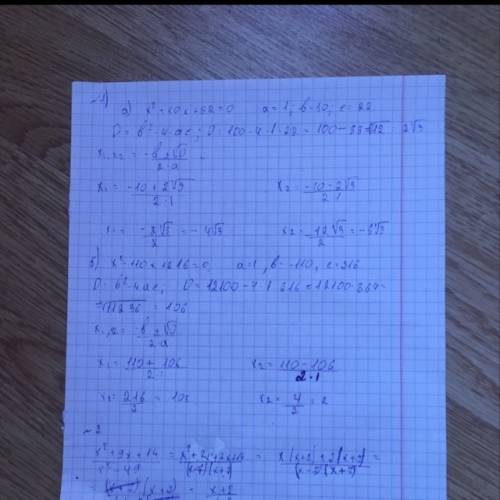 а) x² - 10x + 22 = 0   a = 1; b = 10; c = 22
D = b² - 4·ac; D = 100 - 4·1·22 = 100 - 88 = √12 = 2√3
x₁,x₂ = -b±√D / 2·a
x₁ = -10+2√3 / 2·1   x₂ = -10-2√3 / 2·1
= -4√3   x₂ = -12√3 / 2 = -6√3
б) x² - 110x + 216 = 0, a = 1, b = -110, c = 216
D = b² - 4ac, D = 12100 - 4·1·216 = 12100 - 864 =
= √11236 = 106
x₁,₂ = -b±√D / 2·a
x₁ = 110+106 / 2·1   x₂ = 110-106 / 2·1
x₁ = 216 / 2 = 108   x₂ = 4 / 2 = 2
~2
x²+9x+14 / x²-49 = x²+7x+2x+14 / (x-7)(x+7) = x(x+7)+2(x+7) / (x-7)(x+7) =
= (x+7)(x+2) = x+2